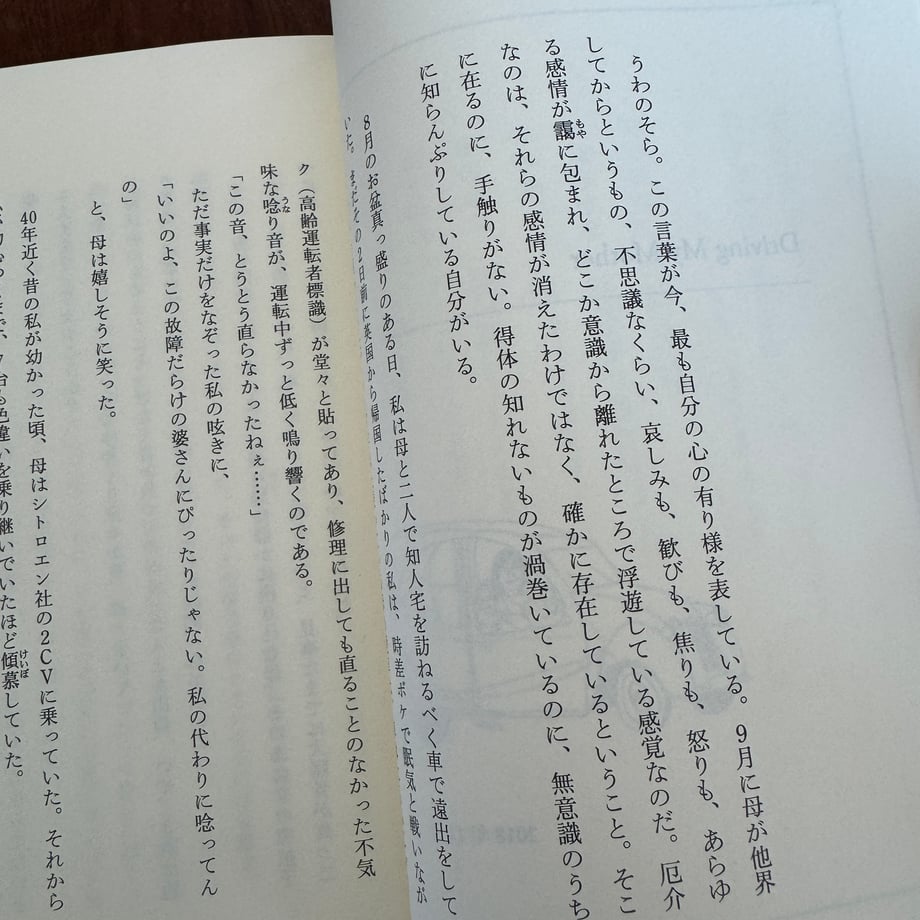 うわのそら。この言葉が今、最も自分の心の有り様を表している。9月に母が他界
してからというもの、不思議なくらい、哀しみも、歓びも、焦りも、怒りも、あらゆ
る感情が靄に包まれ、どこか意識から離れたところで浮遊している感覚なのだ。厄介
もや
なのは、それらの感情が消えたわけではなく、確かに存在しているということ。そこ
に在るのに、手触りがない。得体の知れないものが渦巻いているのに、無意識のうち
に知らんぷりしている自分がいる。
8月のお盆真っ盛りのある日、私は母と二人で知人宅を訪ねるべく車で遠出をして
いた。まだその2日前に英国から帰国したばかりの私は、時差ボケで眠気と戦いなが
ク（高齢運転者標識）が堂々と貼ってあり、修理に出しても直ることのなかった不気
味な唸り音が、運転中ずっと低く鳴り響くのである。
うな
「この音、とうとう直らなかったねぇ……」
ただ事実だけをなぞった私の呟きに、
「いいのよ、この故障だらけの婆さんにぴったりじゃない。私の代わりに唸ってん
の」
と、母は嬉しそうに笑った。
40年近く昔の私が幼かった頃、母はシトロエン社の2CVに乗っていた。それから
色違いを乗り継いでいたほど傾慕していた。
けいぼ